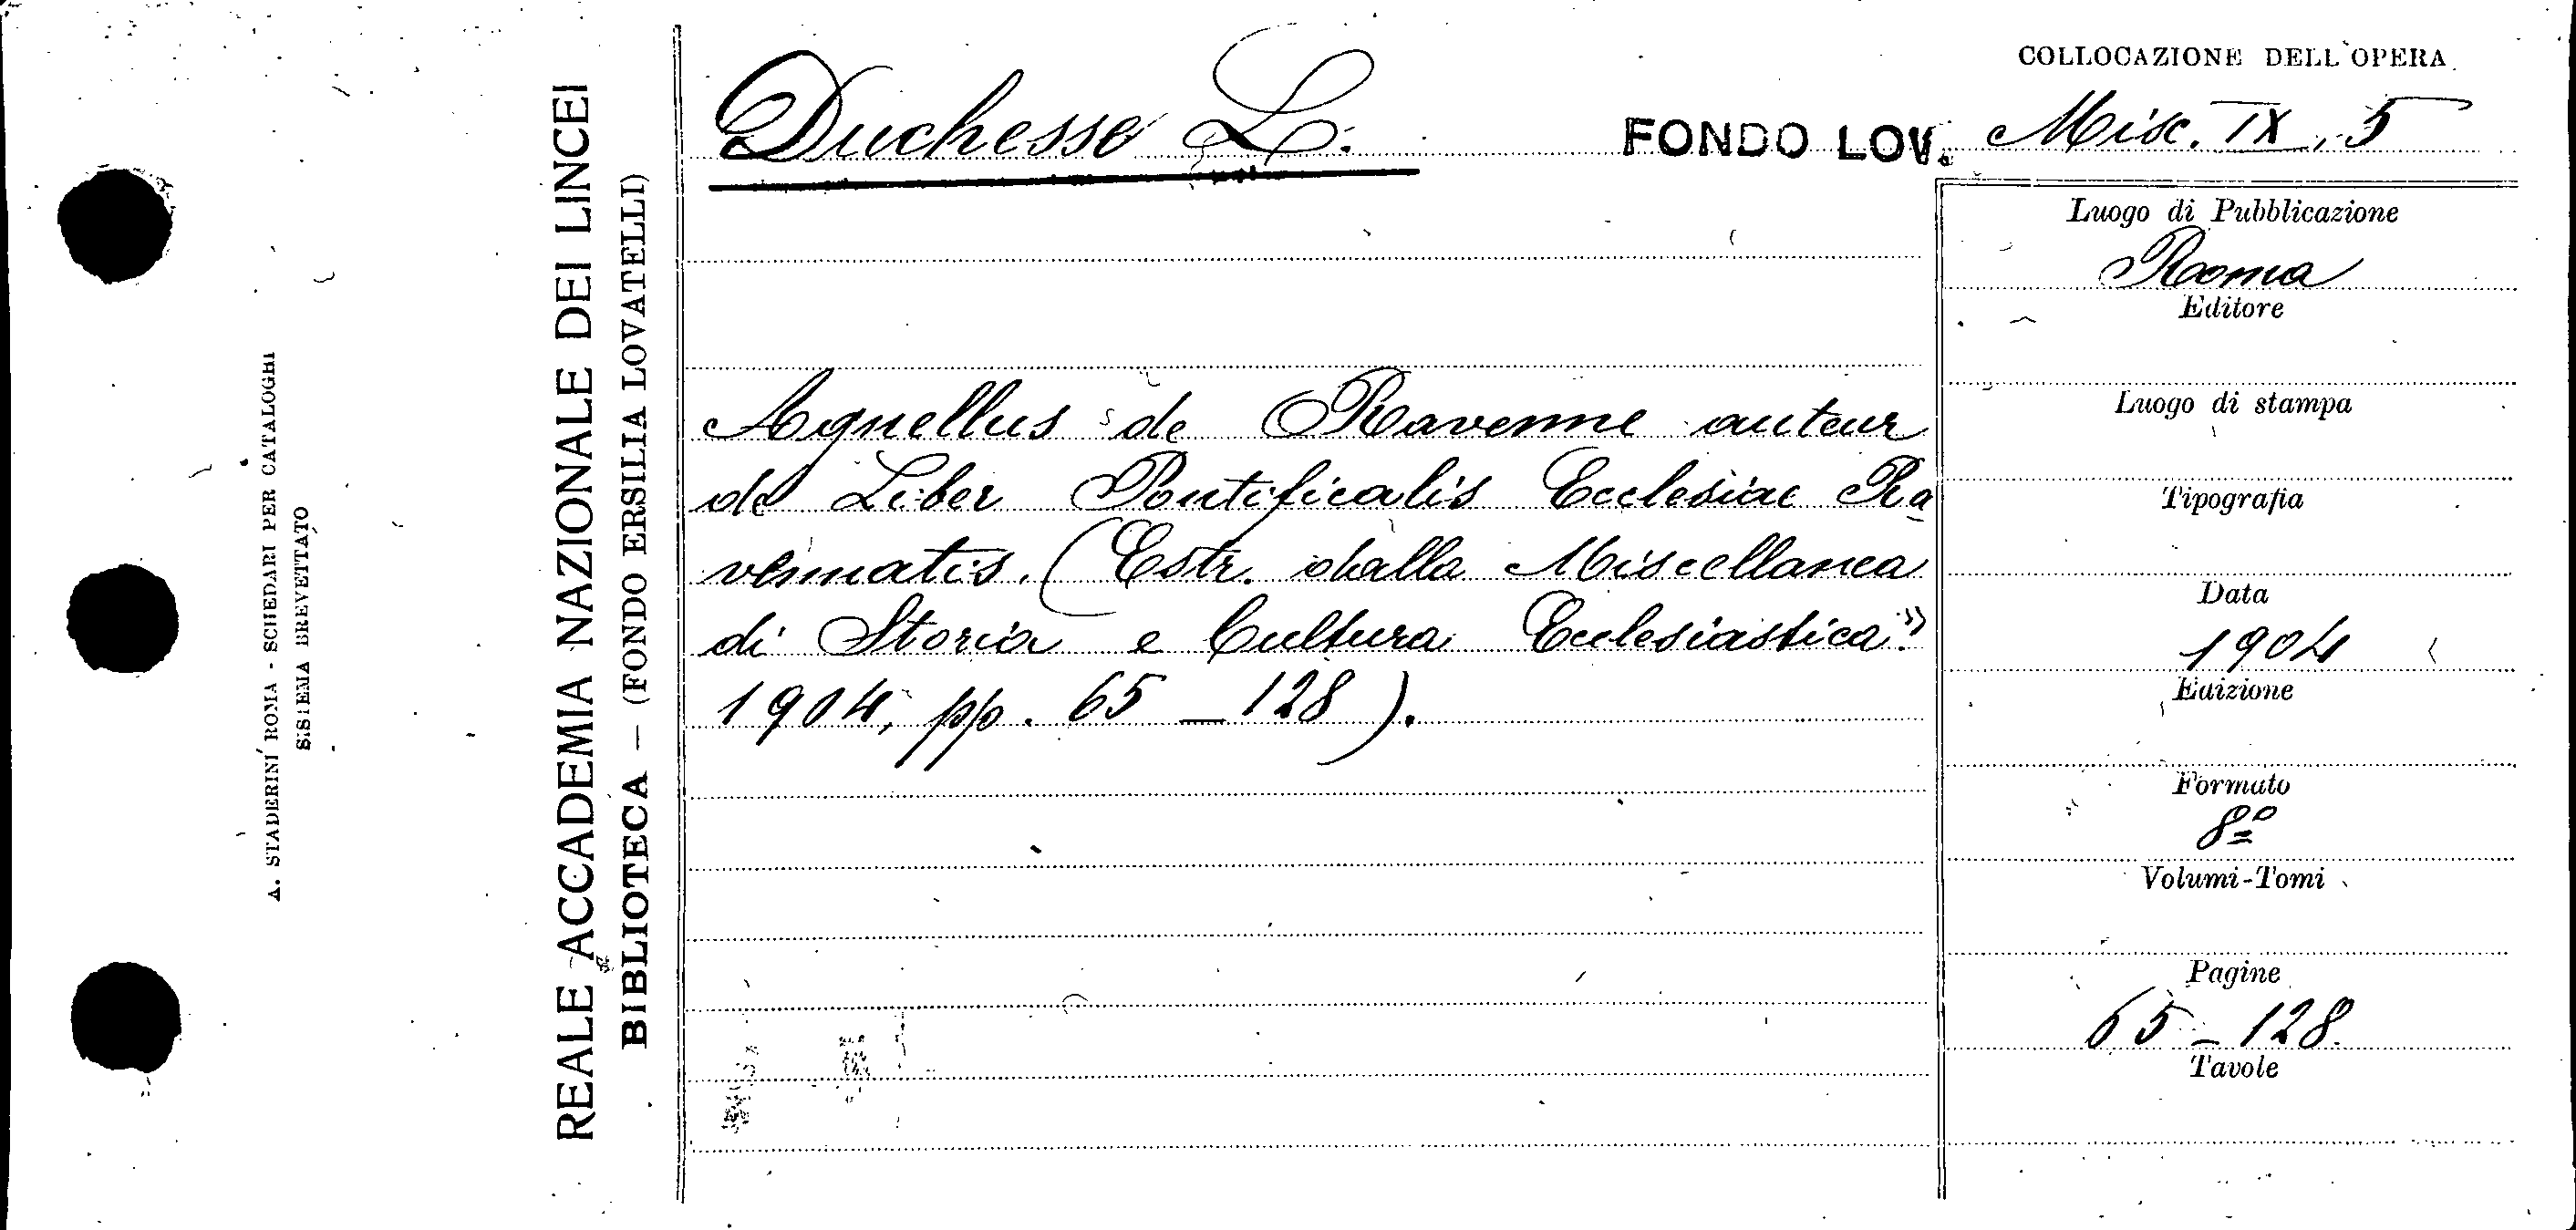 A. STADERINI ROMA - SCHEDARI PER CATALOGHI
SISTEMA BREVETTATO
REALE ACCADEMIA NAZIONALE DEI LINCEI
BIBLIOTECA — (FONDO ERSILIA LOVATELLI)
Duchesse L.
FONDO LOV.
Agnellus de Ravenne auteur
de Liber Pontificalis Ecclesiae Ra
vennatis. (Estr. dalla Miscellanea
di Storia e Cultura Ecclesiastica"
1904, pp. 65 — 128).
COLLOCAZIONE DELL'OPERA
Misc. IX, 5
Luogo di Pubblicazione
Roma
Editore
Luogo di stampa
Tipografia
Data
1904
Edizione
Formato
8º
Volumi-Tomi
Pagine
65 - 128.
Tavole